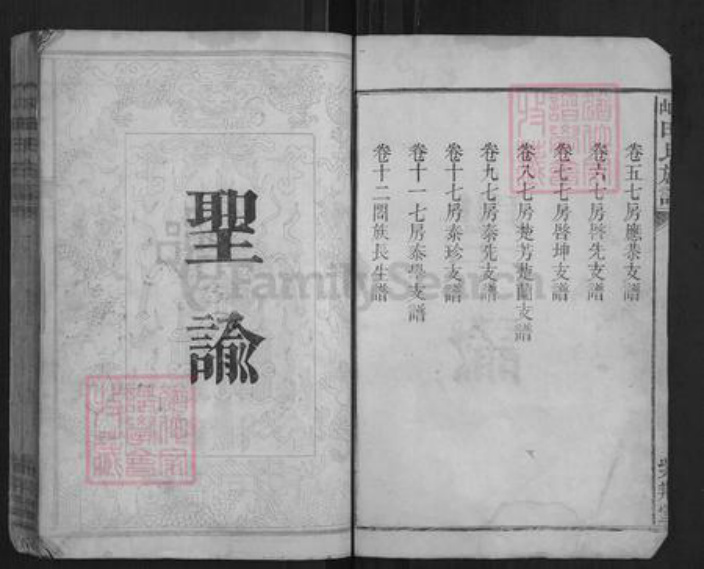 卷五七房應恭支譜
卷六七房啓先支譜
卷七七房啓坤支譜
卷八七房楚芳楚蘭支譜
卷九七房泰先支譜
卷十七房泰珍支譜
卷十一七房泰學支譜
卷十二闔族長生譜
聖
諭
FamilySearch